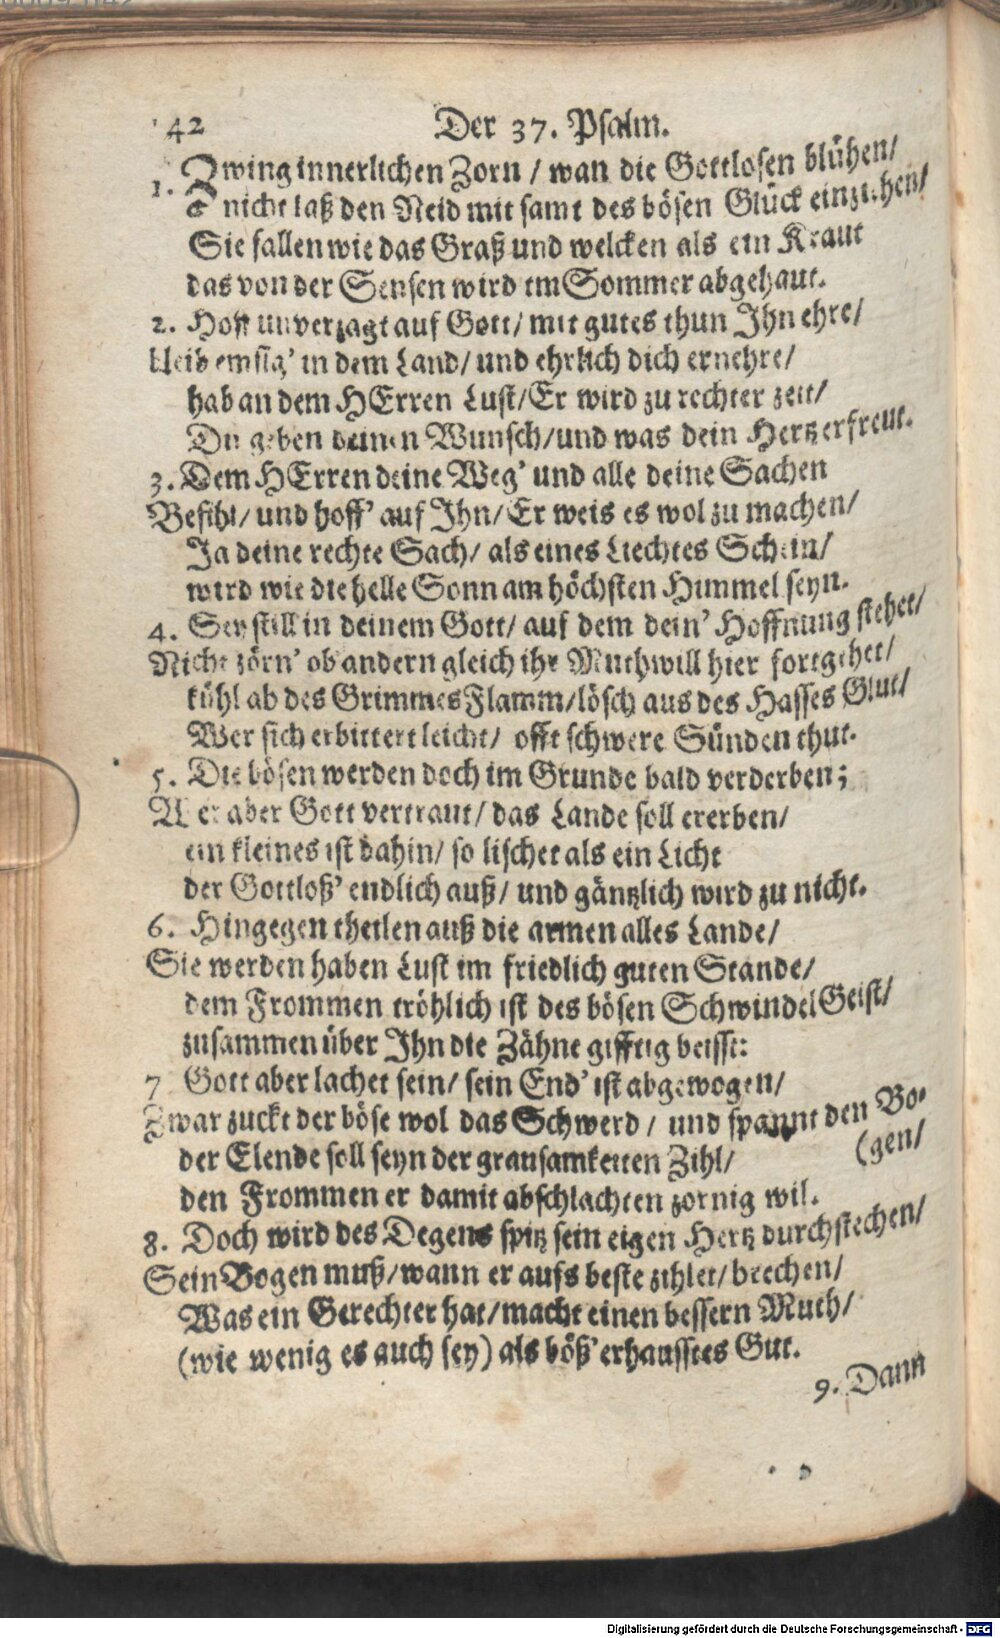 42 Der 37. Psalm.
1. Zwing innerlichen Zorn / wan die Gottlosen blühen/
nicht laß den Neid mit samt des bösen Glück einziehen/
Sie fallen wie das Graß und welcken als ein Kraut
das von der Sensen wird im Sommer abgehaut.
2. Hoff unverzagt auf Gott/ mit gutes thun Ihn ehre/
bleib emsig' in dem Land/ und ehrlich dich ernehre/
hab an dem HErren Lust/ Er wird zu rechter zeit/
Dir geben deinen Wunsch/ und was dein Hertz erfreut.
3. Dem HErren deine Weg' und alle deine Sachen
Befihl/ und hoff' auf Ihn/ Er weis es wol zu machen/
Ja deine rechte Sach/ als eines Liechtes Schein/
wird wie die helle Sonn am höchsten Himmel seyn.
4. Sey still in deinem Gott/ auf dem dein' Hoffnung stehet/
Nicht zörn' ob andern gleich ihr Muthwill hier fortgehet/
kühl ab des Grimmes Flamm/ lösch aus des Hasses Glut/
Wer sich erbittert leicht/ offt schwere Sünden thut.
5. Die bösen werden doch im Grunde bald verderben;
Wer aber Gott vertraut/ das Lande soll ererben/
ein kleines ist dahin/ so lischet als ein Licht
der Gottloß' endlich auß/ und gäntzlich wird zu nicht.
6. Hingegen theilen auß die armen alles Lande/
Sie werden haben Lust im friedlich guten Stande/
dem Frommen tröhlich ist des bösen Schwindel Geist/
zusammen über Ihn die Zähne gifftig beisst:
7 Gott aber lachet sein/ sein End' ist abgewogen/
Zwar zuckt der böse wol das Schwerd / und spannt den Bo-
(gen/
der Elende soll seyn der grausamkeiten Zihl/
den Frommen er damit abschlachten zornig wil.
8. Doch wird des Degens spitz sein eigen Hertz durchstechen/
Sein Bogen muß/ wann er aufs beste zihlet/ brechen/
Was ein Gerechter hat/ macht einen bessern Muth/
(wie wenig es auch sey) als böß' erhausstes Gut.
9. Dann
Digitalisierung gefördert durch die Deutsche Forschungsgemeinschaft - DFG